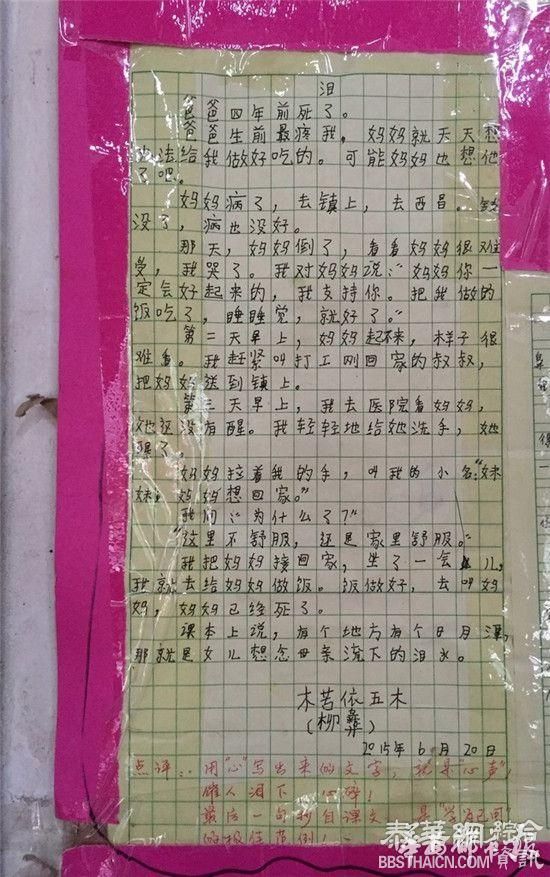 泪
爸爸四年前死了。
爸爸生前最疼我。妈妈就天天想
办法给我做好吃的。可能妈妈也想他
了吧。
妈妈病了,去镇上,去西昌。钱
没了,病也没好。
那天,妈妈倒了,看看妈妈很难
受,我哭了。我对妈妈说:“妈妈你一
定会好起来的,我支持你。把我做的
饭吃了,睡睡觉,就好了。”
第二天早上,妈妈起不来,样子很
难看。我赶紧叫打工刚回家的叔叔,
把妈妈送到镇上。
第三天早上,我去医院看妈妈,
她还没有醒。我轻轻地给她洗手,她
醒了。
妈妈拉着我的手,叫我的小名:“妹
妹,妈妈想回家。”
我问:“为什么了?”
“这里不舒服,还是家里舒服。”
我把妈妈接回家,坐了一会儿,
我就去给妈妈做饭。饭做好,去叫妈
妈,妈妈已经死了。
课本上说,有个地方有个日月潭,
那就是女儿想念母亲流下的泪水。
木苦依五木
(柳彝)
2015年6月20日
点评:用“心”写出来的文字,就是“心声”,
催人泪下 心碎!
最后一句抄自课文 是“学为己用”
的极佳范例!
泰華網 綜合
資訊
BBSTHAICN.COM